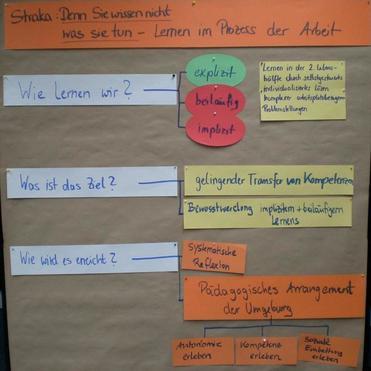 Straka: Denn Sie wissen nicht
was sie tun - Lernen im Prozess der Arbeit
Wie Lernen wir?
explizit
beiläufig
implizit
Lernen in der 2. Lebens-
hälfte durch selbstgesteuertes
individualisiertes Lösen
komplexer arbeitsplatzbezogener
Problemstellungen
Was ist das Ziel?
gelingender Transfer von Kompetenzen
Bewusstwerdung implizitem + beiläufigem
Lernens
Wie wird es erreicht?
Systematische
Reflexion
Pädagogisches Arrangement
der Umgebung
Autonomie
erleben
Kompetenz
erleben
Soziale
Einbettung
erleben